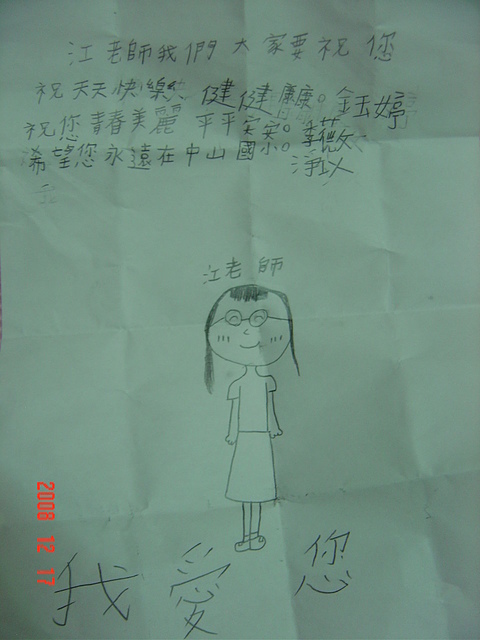 江老師我們大家要祝您
祝天天快樂 健健康康。金玉婷
祝您青春美麗 平平安安。李薇
希望您永遠在中山國小。
江老師
我愛您
2008 12 17